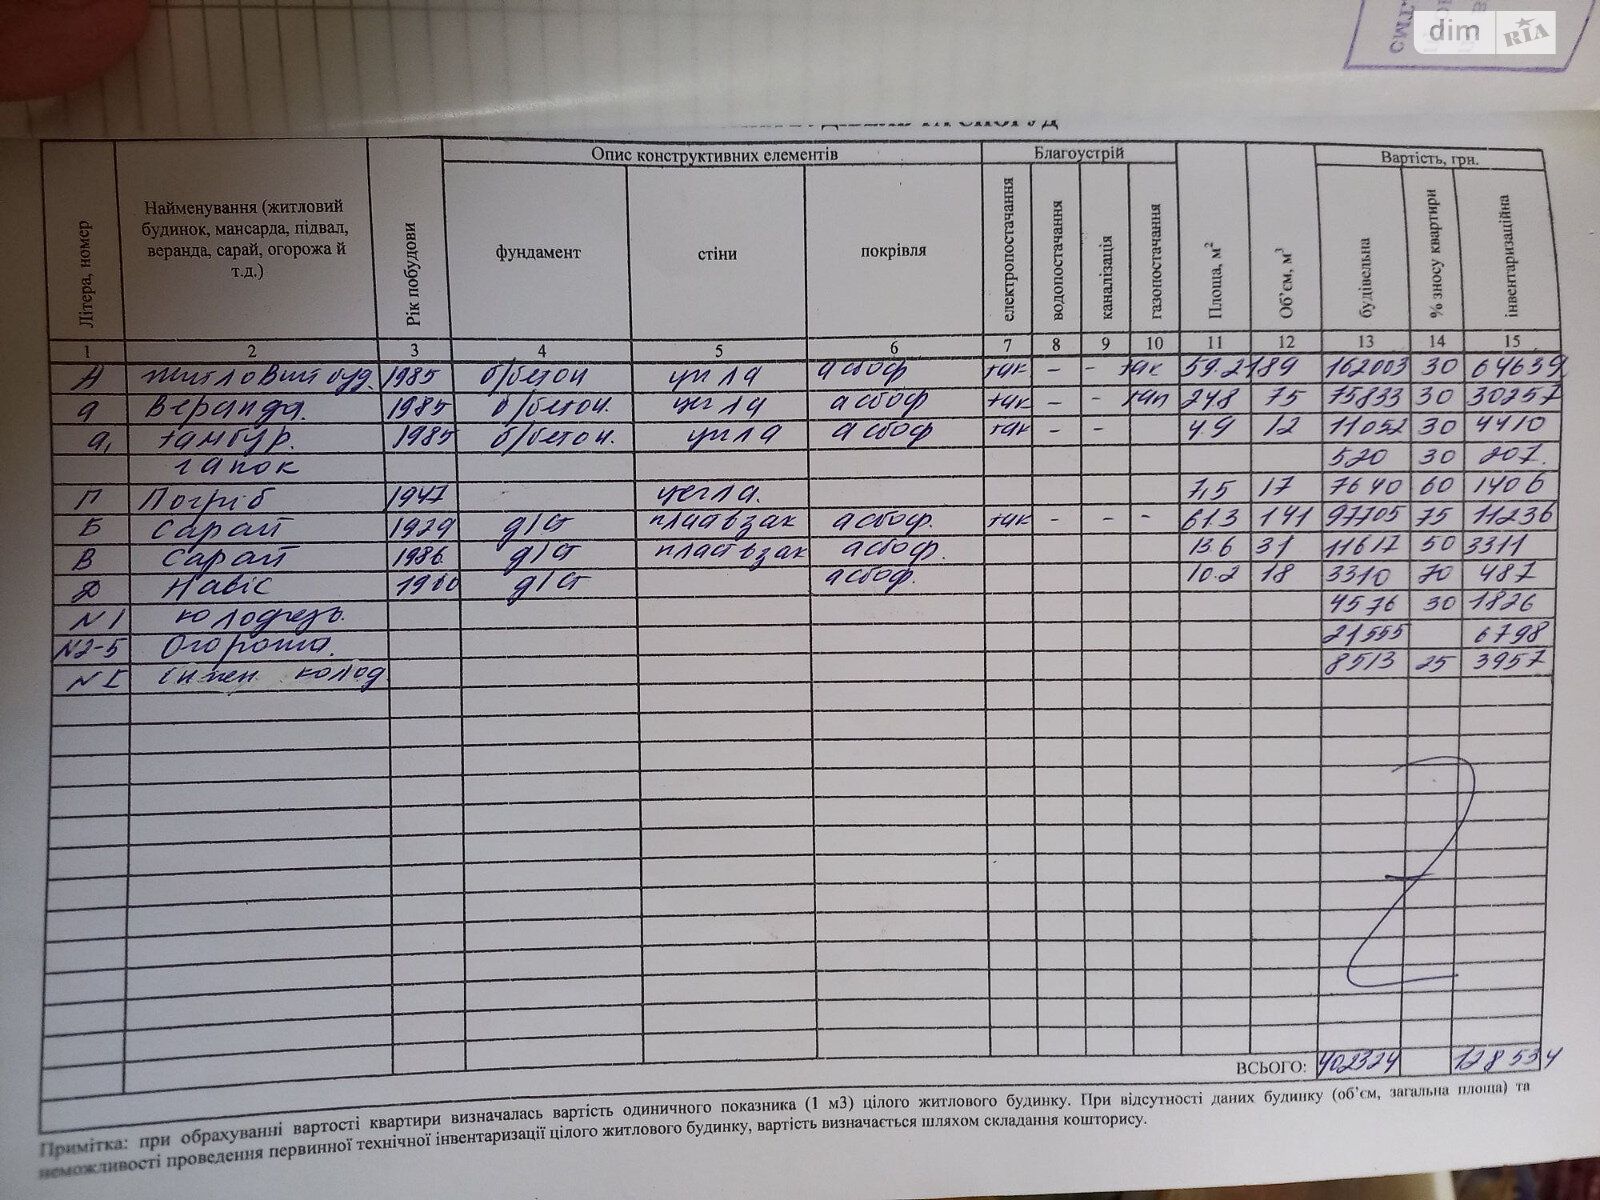 dim RIA
Опис конструктивних елементів Благоустрій Вартість, грн.
Літера, номер
Найменування (житловий будинок, мансарда, підвал, веранда, сарай, огорожа й т.д.)
Рік побудови
фундамент
стіни
покрівля
електропостачання
водопостачання
каналізація
газопостачання
Площа, м²
Об'єм, м³
будівельна
% зносу квартири
інвентаризаційна
1 2 3 4 5 6 7 8 9 10 11 12 13 14 15
А житловий буд. 1985 б/бетон цегла асбоф так - - так 59.2 189 162003 30 64639
а Веранда. 1985 б/бетон. цегла асбоф так - - так 24.8 75 75833 30 30257
а₁ тамбур. 1985 б/бетон. цегла асбоф так - - 4.9 12 11052 30 4410
ганок 520 30 207.
П Погріб 1947 цегла. 7,5 17 7640 60 1406
Б Сарай 1929 д/ст асбоф. так - - - 61.3 141 97705 75 11236
В Сарай 1986 д/ст асбоф. 13.6 31 11617 50 3311
Д Навіс д/ст асбоф. 10.2 18 3310 70 487
N1 колодязь. 4576 30 1826
N2-5 Огорожа. 21555 6798
N I колод 8513 25 3957
ВСЬОГО: 402324 128534
Примітка: при обрахуванні вартості квартири визначалась вартість одиничного показника (1 м3) цілого житлового будинку. При відсутності даних будинку (об'єм, загальна площа) та
неможливості проведення первинної технічної інвентаризації цілого житлового будинку, вартість визначається шляхом складання кошторису.